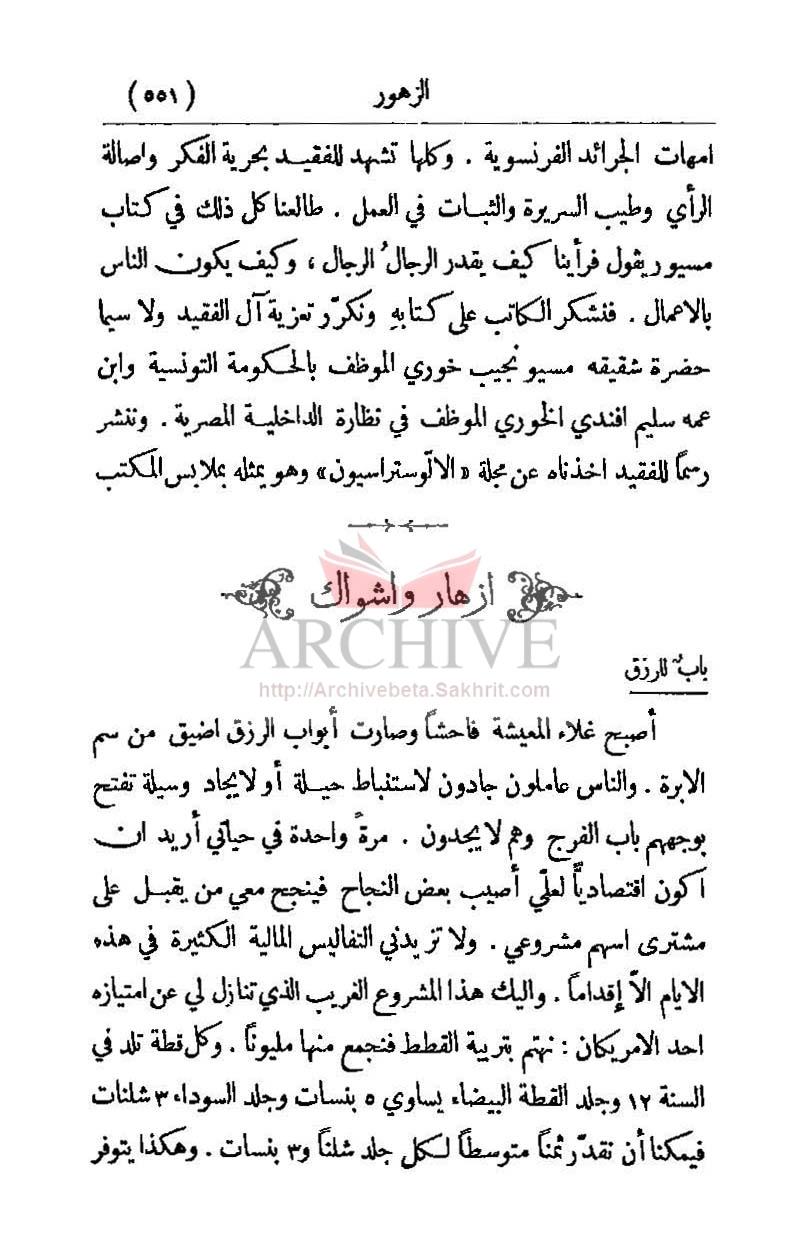 الزهور
(٥٥١)
امهات الجرائد الفرنسوية . وكلها تشهد للفقيد بحرية الفكر واصالة
الرأي وطيب السريرة والثبات في العمل . طالعنا كل ذلك في كتاب
مسيو ريڤول فرأينا كيف يقدر الرجالُ الرجال ، وكيف يكون الناس
بالاعمال . فنشكر الكاتب على كتابهِ ونكرّر تعزية آل الفقيد ولا سيما
حضرة شقيقه مسيو نجيب خوري الموظف بالحكومة التونسية وابن
عمه سليم افندي الخوري الموظف في نظارة الداخلية المصرية . وننشر
رسماً للفقيد اخذناه عن مجلة «الالّوستراسيون» وهو يمثله بملابس المكتب
ازهار واشواك
ARCHIVE
http://Archivebeta.Sakhrit.com
بابٌ للرزق
أصبح غلاء المعيشة فاحشاً وصارت أبواب الرزق اضيق من سم
الابرة . والناس عاملون جادون لاستنباط حيلة أو لايجاد وسيلة تفتح
بوجههم باب الفرج وهم لا يجدون . مرةً واحدة في حياتي أريد ان
اكون اقتصاديًّا لعلّي أصيب بعض النجاح فينجح معي من يقبل على
مشترى اسهم مشروعي . ولا تزيدني التفاليس المالية الكثيرة في هذه
الايام الاّ إقداماً . واليك هذا المشروع الغريب الذي تنازل لي عن امتيازه
احد الامريكان : نهتم بتربية القطط فنجمع منها مليوناً . وكل قطة تلد في
السنة ١٢ وجلد القطة البيضاء يساوي ٥ بنسات وجلد السوداء ٣ شلنات
فيمكننا أن نقدّر ثمناً متوسطاً لكل جلد شلناً و٣ بنسات . وهكذا يتوفر